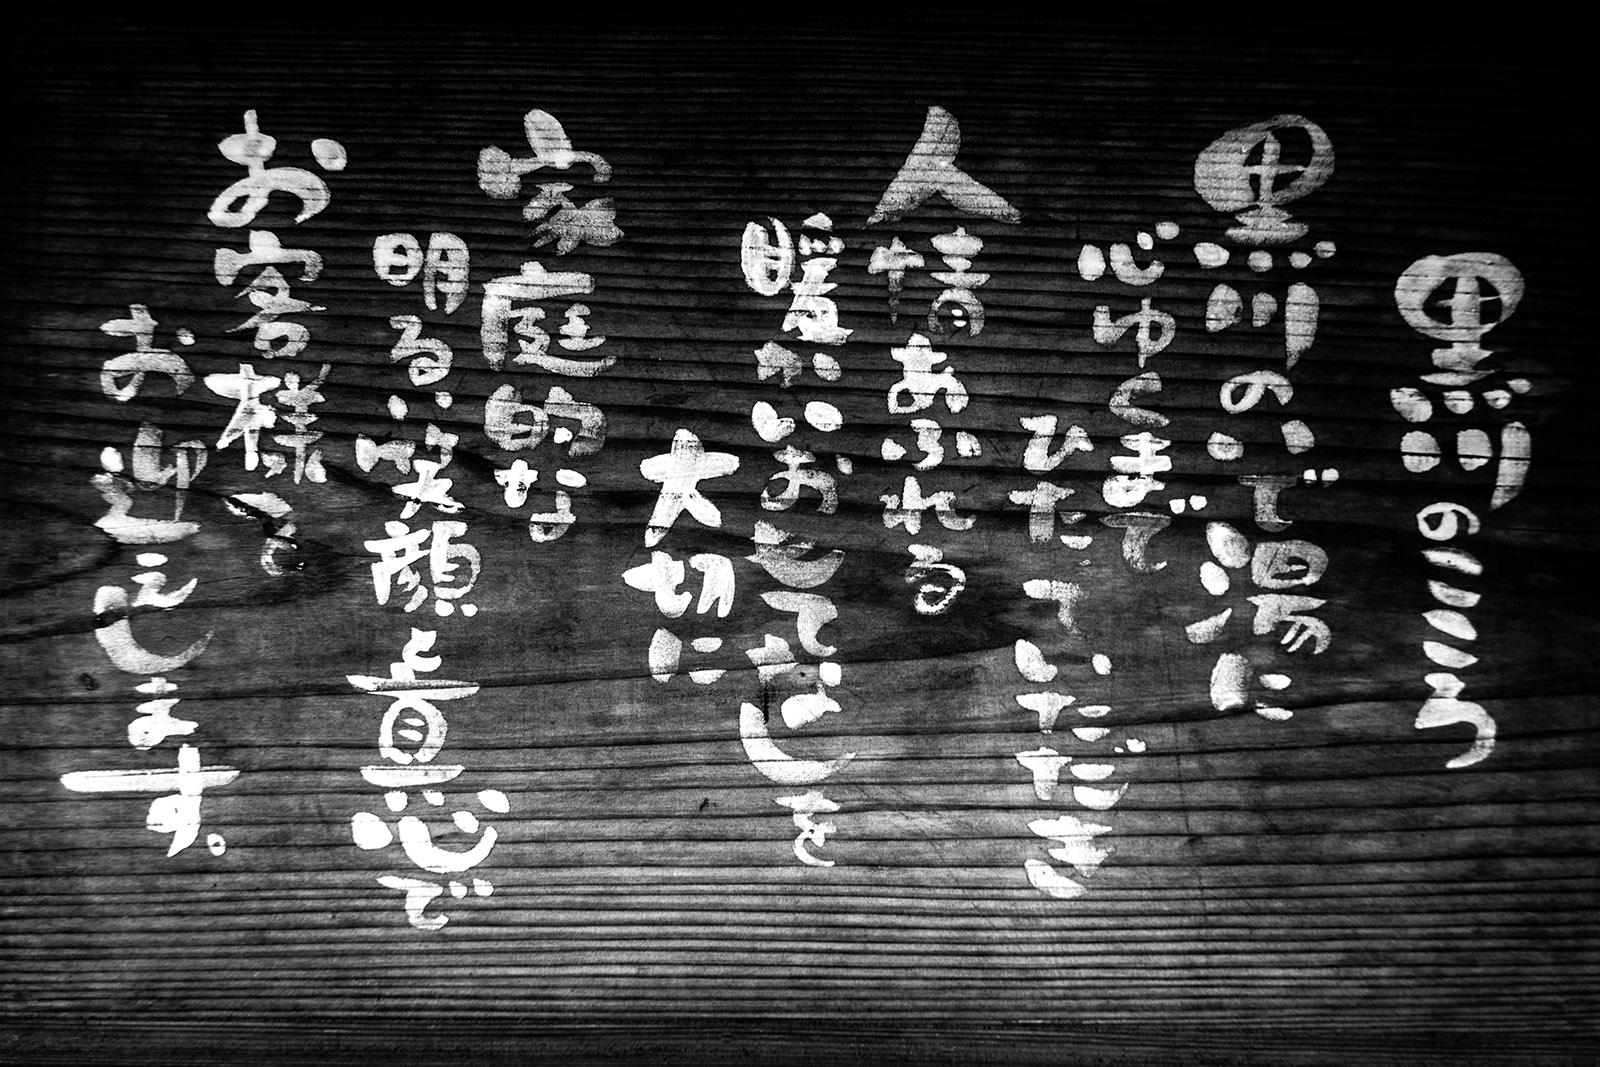 黒川のこころ
黒川のいで湯に
心ゆくまで
ひたていただき
人情あふれる
暖かいおもてなしを
大切に
家庭的な
明るい笑顔と真心で
お客様を
お迎えします。